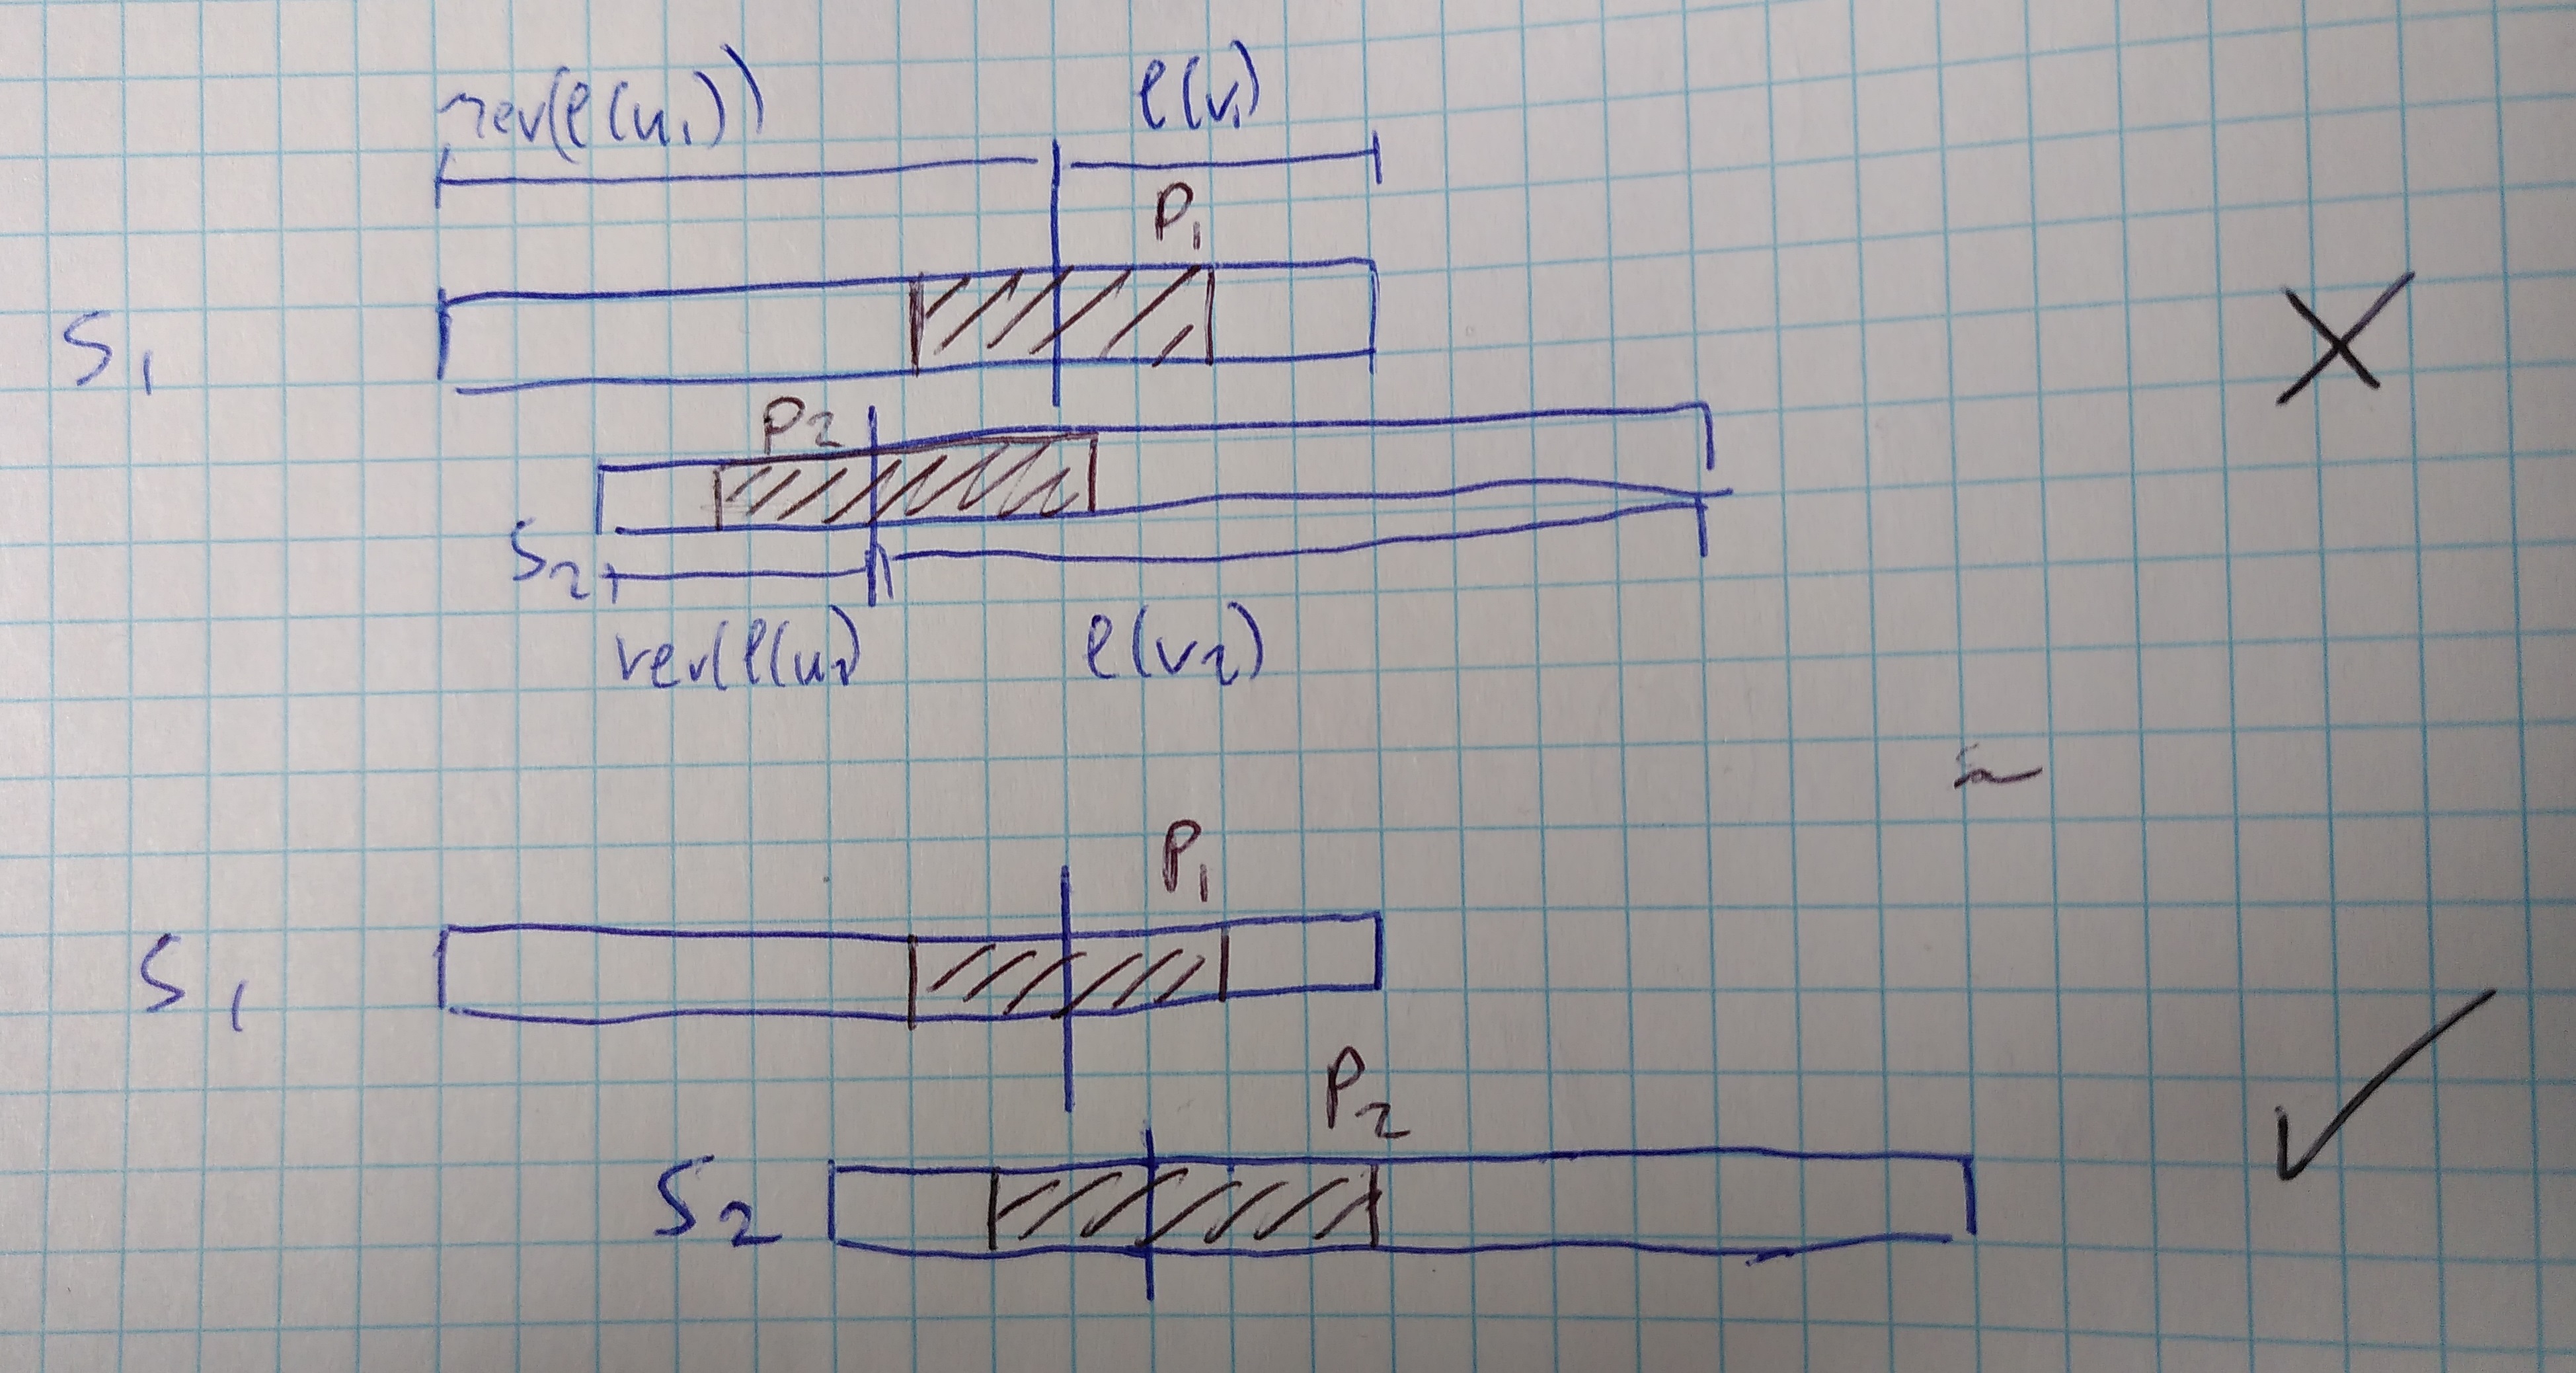 rev(l(u₁)) l(v₁)
P₁
S₁
P₂
S₂
rev(l(u₂) l(v₂)
P₁
S₁
P₂
S₂